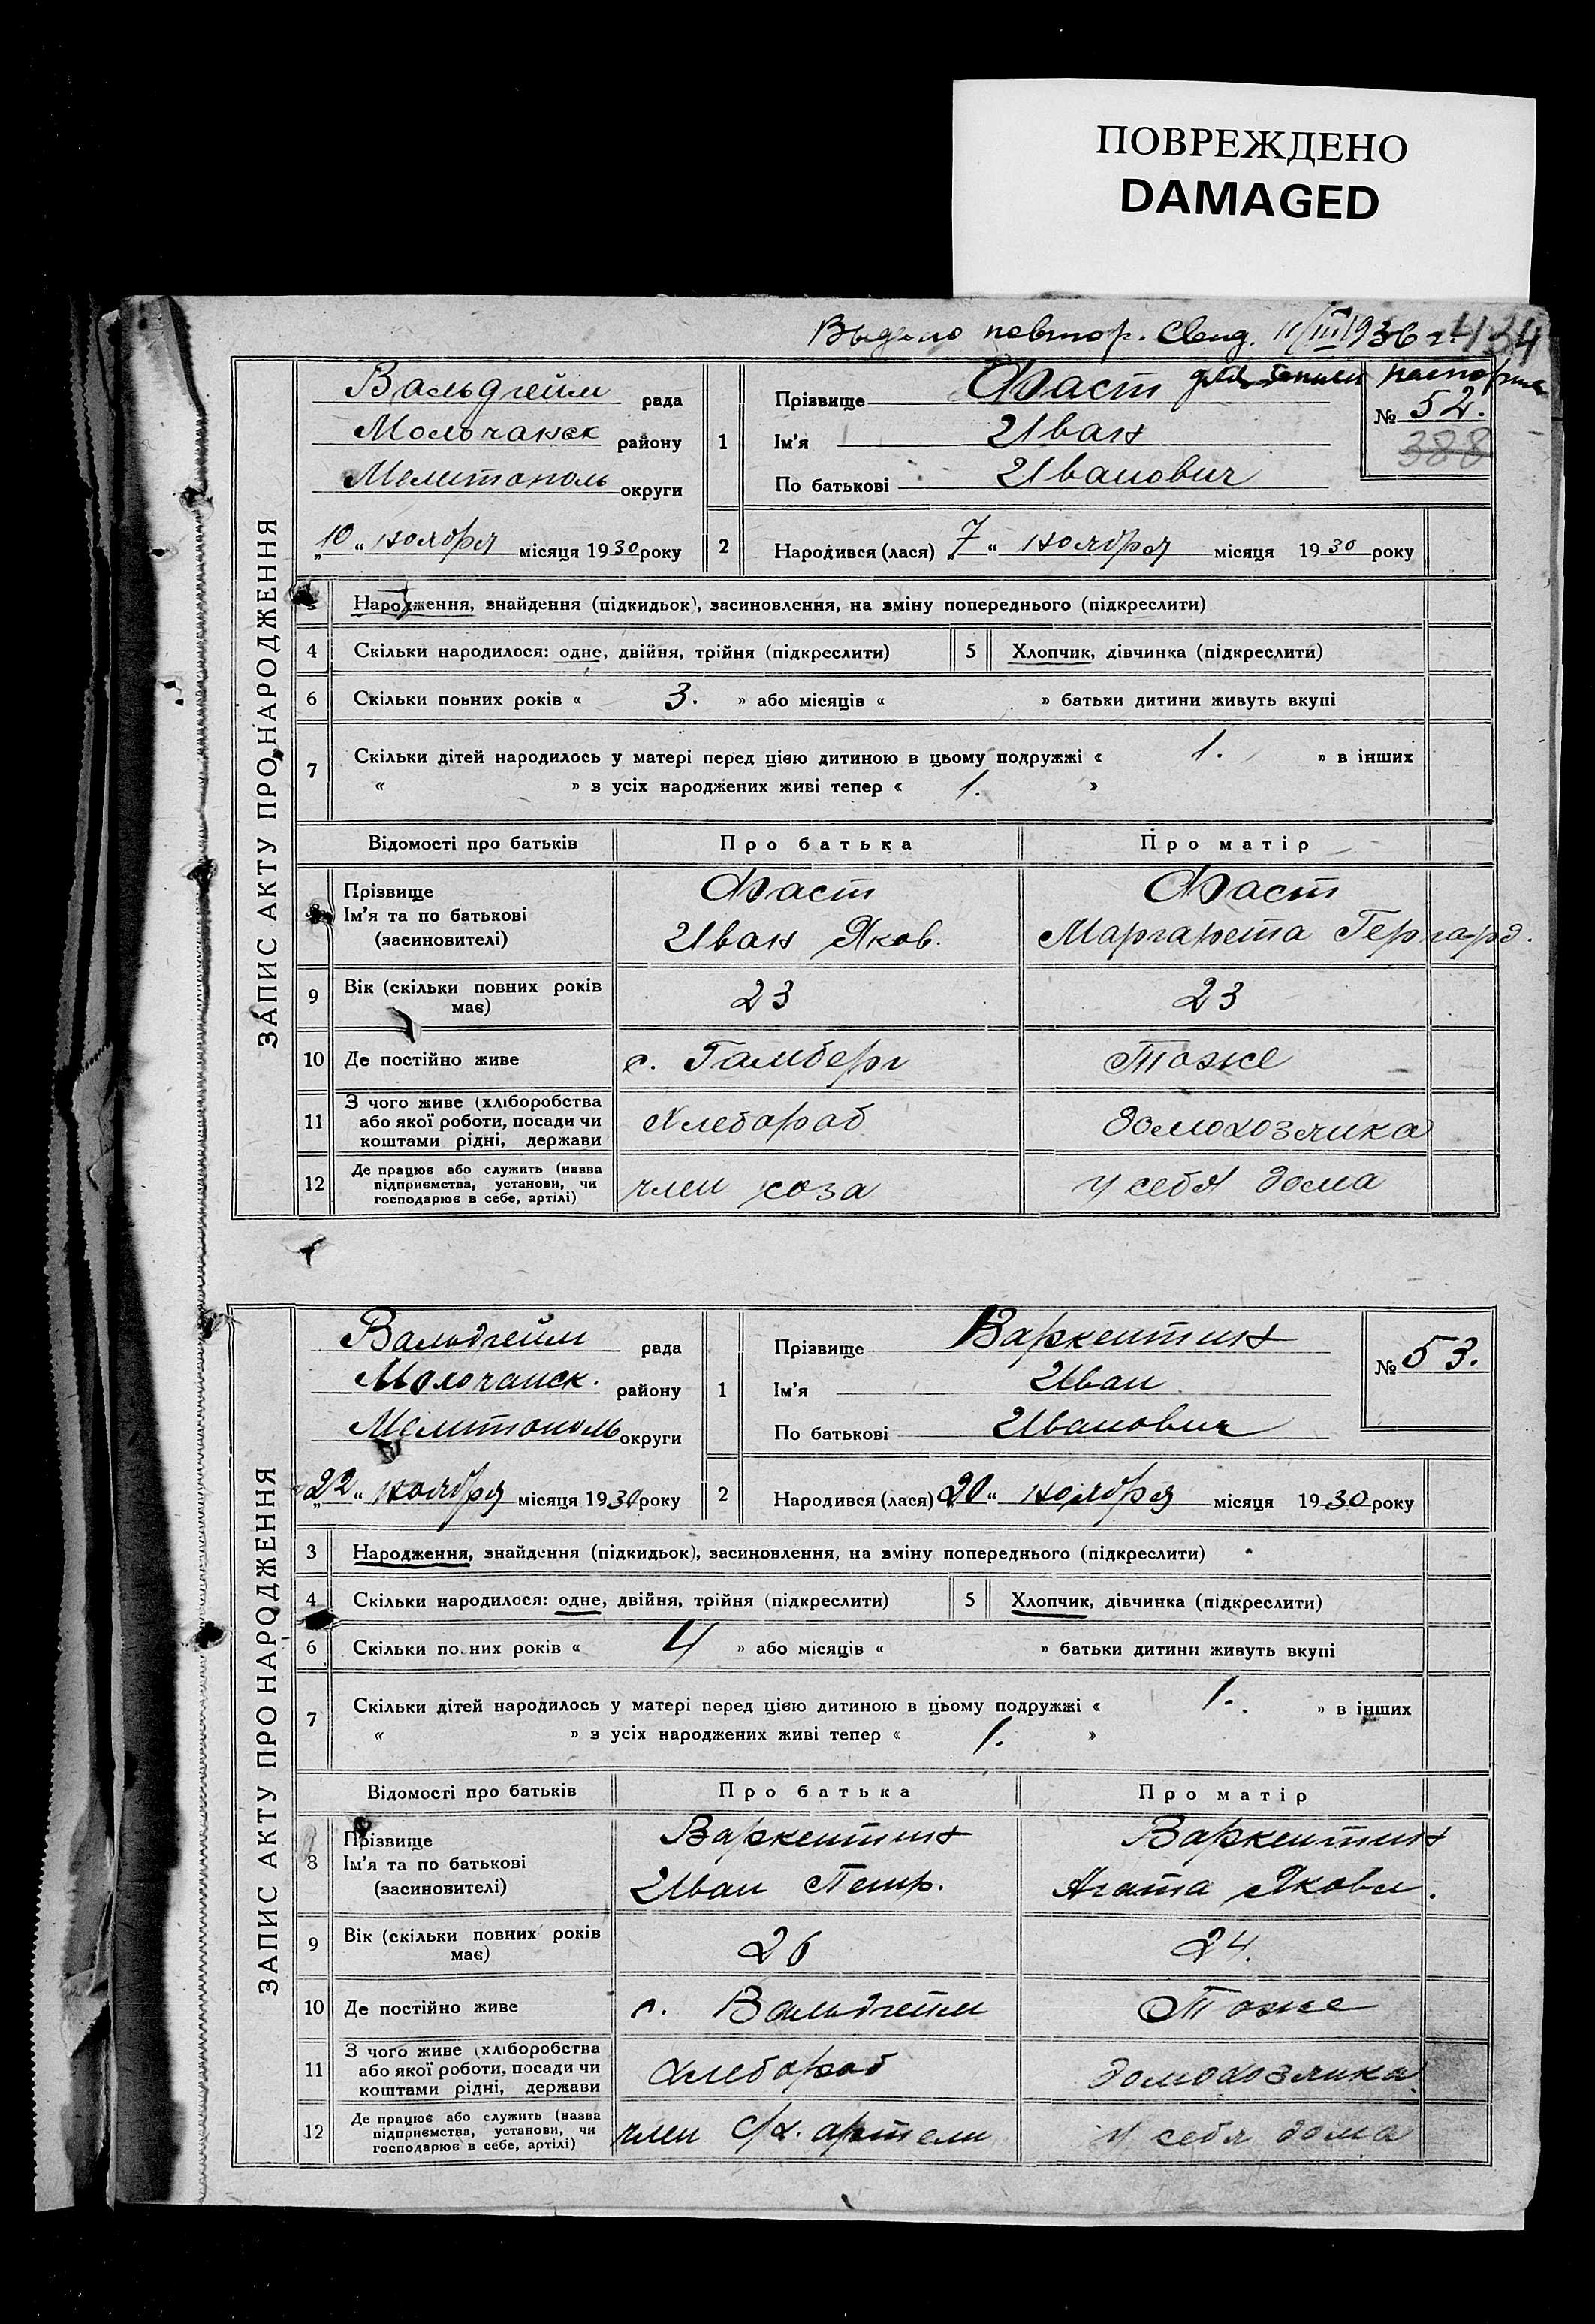 ПОВРЕЖДЕНО
DAMAGED
Выдано повтор. Свид. 11/III 1936 г. 434
паспорта
ЗАПИС АКТУ ПРО НАРОДЖЕННЯ
Вальдгейм рада
Молочанск району
Мелитополь округи
„10“ ноября місяця 1930 року
1
Прізвище Фаст
Ім'я Иван
По батькові Иванович
№ 52.
388
2 Народився (лася) „7“ ноября місяця 1930 року
Народження, знайдення (підкидьок), засиновлення, на зміну попереднього (підкреслити)
4 Скільки народилося: одне, двійня, трійня (підкреслити) 5 Хлопчик, дівчинка (підкреслити)
6 Скільки повних років « 3. » або місяців « » батьки дитини живуть вкупі
7 Скільки дітей народилось у матері перед цією дитиною в цьому подружжі « 1. » в інших
« » з усіх народжених живі тепер « 1. »
Відомості про батьків Про батька Про матір
8 Прізвище Фаст Фаст
Ім'я та по батькові Иван Яков. Маргарета Гергард.
(засиновителі)
9 Вік (скільки повних років має) 23 23
10 Де постійно живе с. Гамберг Тоже
11 З чого живе (хліборобства або якої роботи, посади чи коштами рідні, держави Хлебороб домохозяйка
12 Де працює або служить (назва підприємства, установи, чи господарює в себе, артілі) член соза у себя дома
ЗАПИС АКТУ ПРО НАРОДЖЕННЯ
Вальдгейм рада
Молочанск. району
Мелитополь округи
„22“ ноября місяця 1930 року
1
Прізвище Варкентин
Ім'я Иван
По батькові Иванович
№ 53.
2 Народився (лася) „20“ ноября місяця 1930 року
3 Народження, знайдення (підкидьок), засиновлення, на зміну попереднього (підкреслити)
4 Скільки народилося: одне, двійня, трійня (підкреслити) 5 Хлопчик, дівчинка (підкреслити)
6 Скільки повних років « 4 » або місяців « » батьки дитини живуть вкупі
7 Скільки дітей народилось у матері перед цією дитиною в цьому подружжі « 1. » в інших
« » з усіх народжених живі тепер « 1. »
Відомості про батьків Про батька Про матір
8 Прізвище Варкентин Варкентин
Ім'я та по батькові Иван Петр. Агата Яковл.
(засиновителі)
9 Вік (скільки повних років має) 26 24.
10 Де постійно живе с. Вальдгейм Тоже
11 З чого живе (хліборобства або якої роботи, посади чи коштами рідні, держави хлебороб домохозяйка
12 Де працює або служить (назва підприємства, установи, чи господарює в себе, артілі) член С/х. артели у себя дома